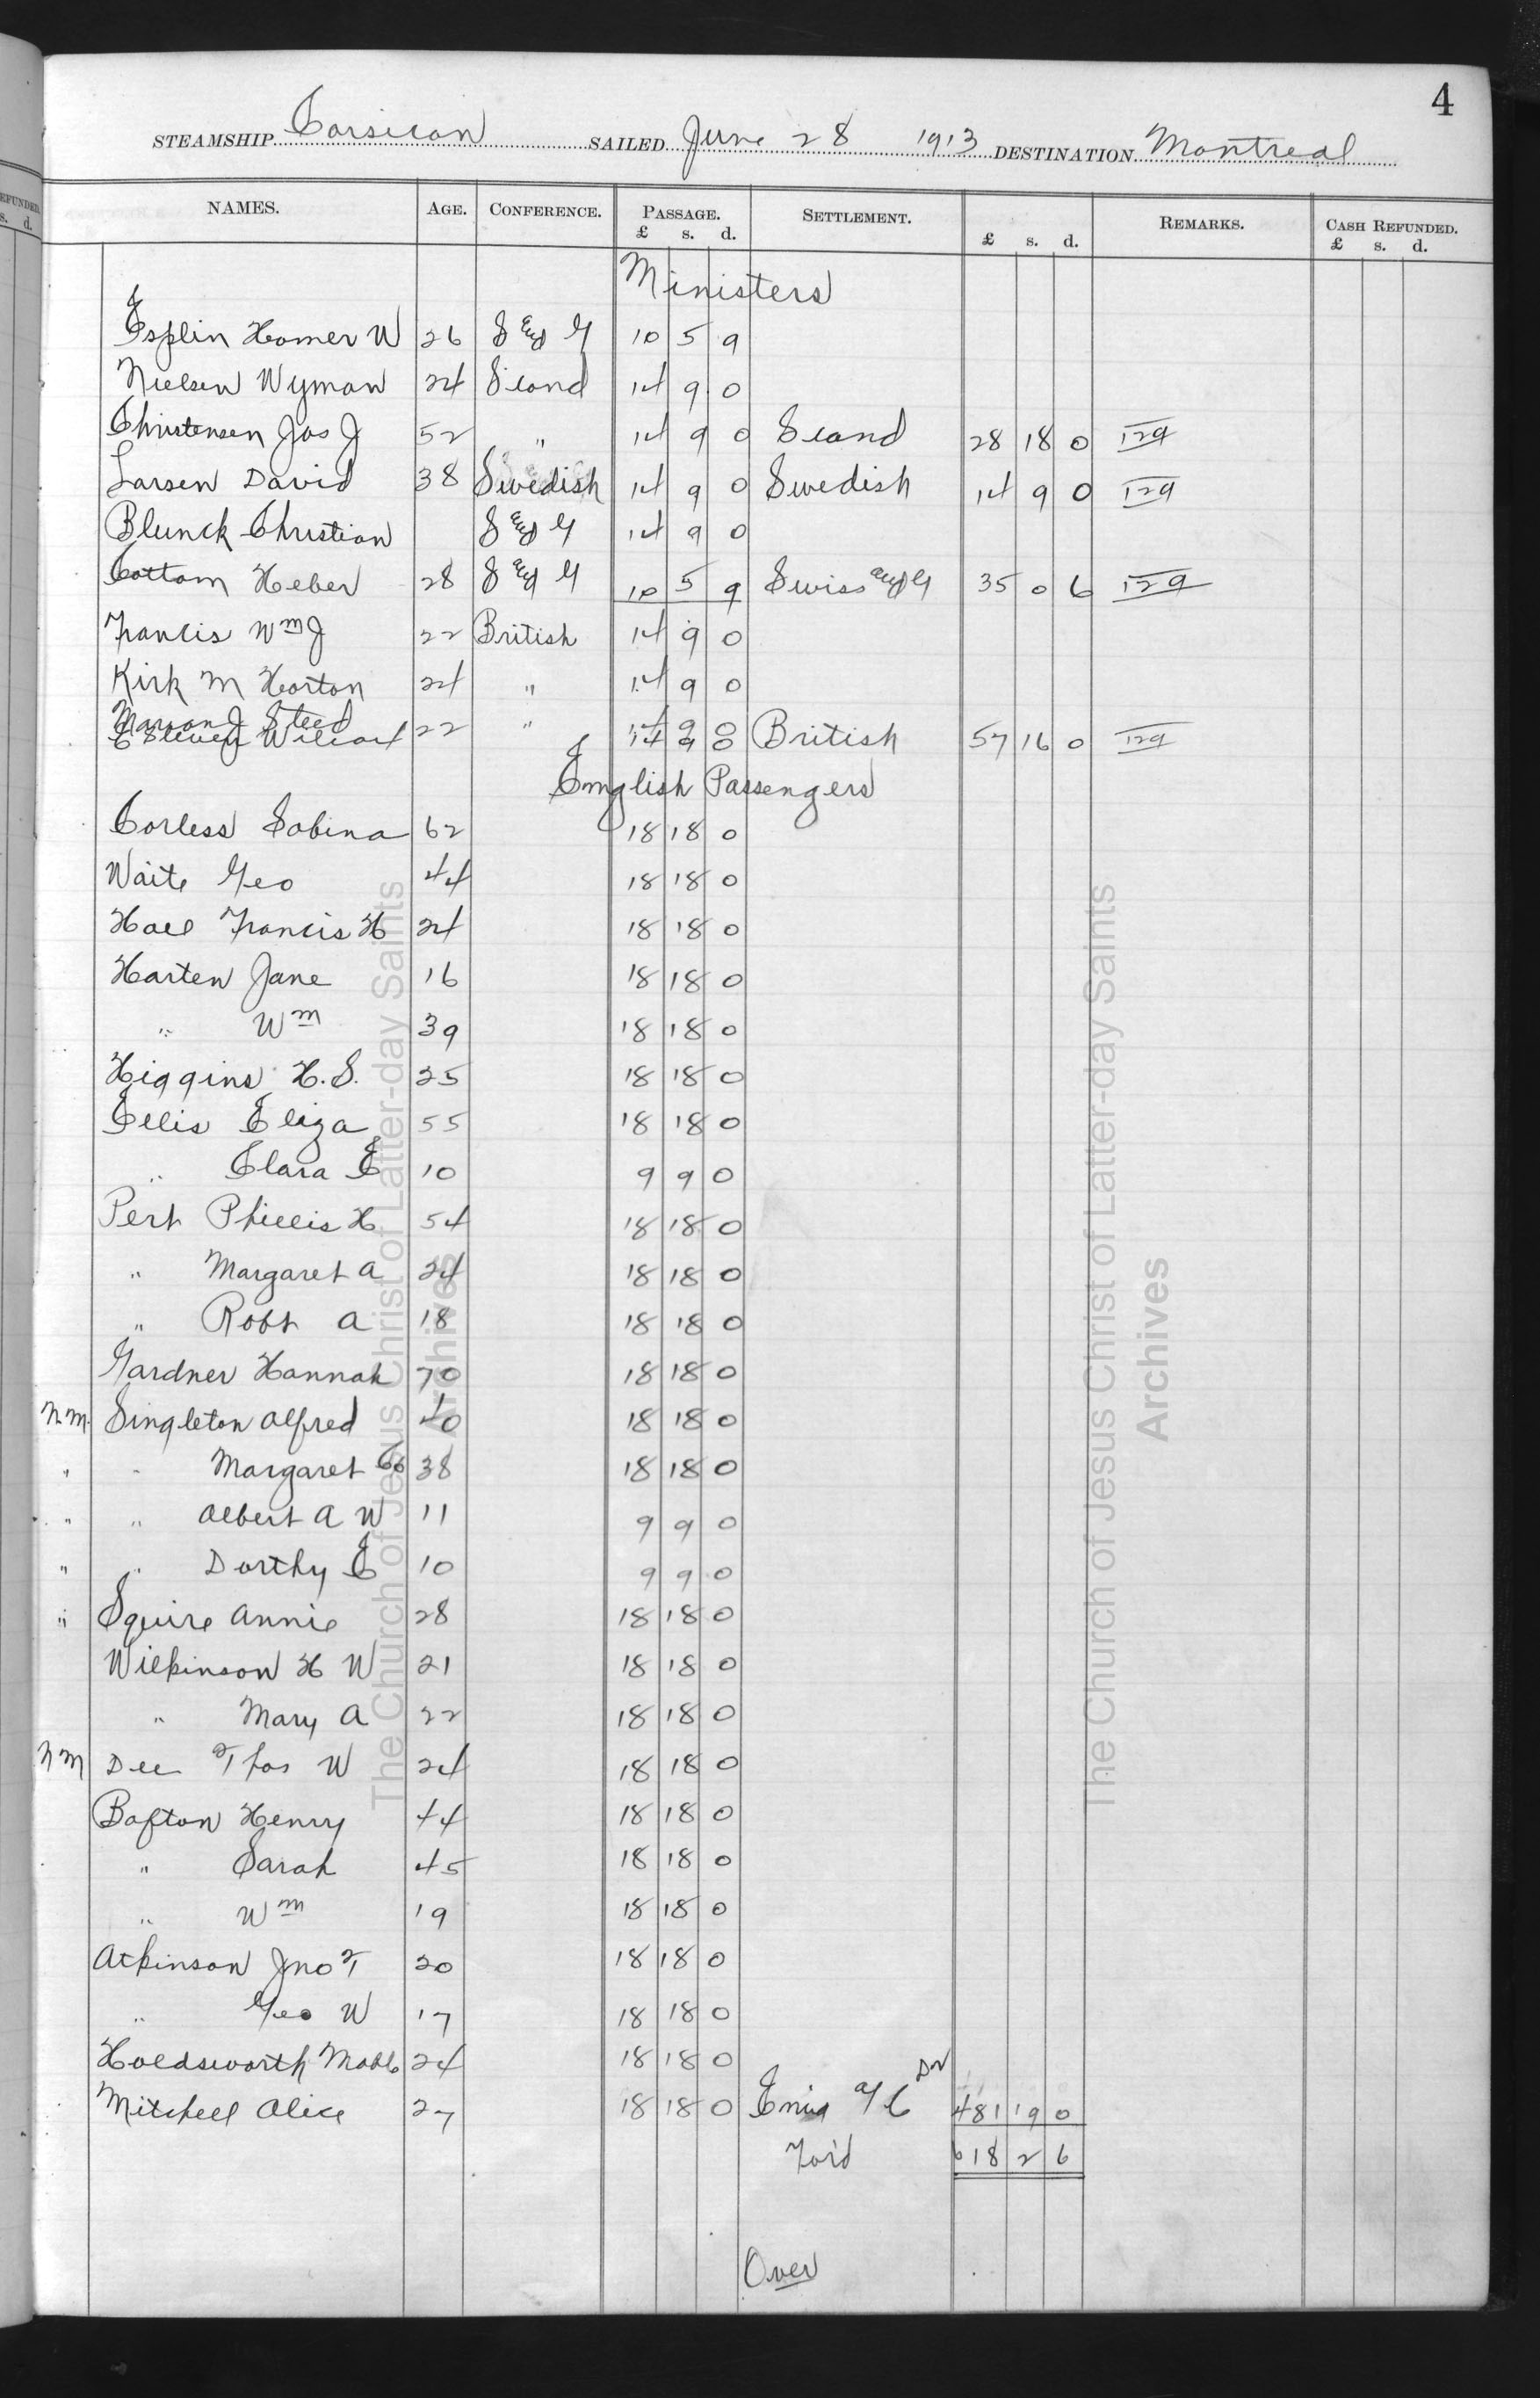 4
STEAMSHIP Corsican SAILED June 28 1913 DESTINATION Montreal
NAMES. AGE. CONFERENCE. PASSAGE. £ s. d. SETTLEMENT. £ s. d. REMARKS. CASH REFUNDED. £ s. d.
Ministers
Esplin Homer W 26 S and G 10 5 9
Nielsen Wyman 24 Scand 14 9 0
Christensen Jas J 52 " 14 9 0 Scand 28 18 0 129
Larsen David 38 Swedish 14 9 0 Swedish 14 9 0 129
Blunck Christian S and G 14 9 0
Cottam Heber 28 S and G 10 5 9 Swiss and G 35 0 6 129
Francis Wm J 22 British 14 9 0
Kirk M Horton 24 " 14 9 0
Marion J Steed 22 " 14 9 0
Wilcox 14 9 0 British 57 16 0 129
English Passengers
Corless Sabina 62 18 18 0
Waite Geo 44 18 18 0
Hall Francis H 24 18 18 0
Harten Jane 16 18 18 0
" Wm 39 18 18 0
Higgins H. S. 25 18 18 0
Ellis Eliza 55 18 18 0
" Clara E 10 9 9 0
Pert Phillis H 54 18 18 0
" Margaret A 24 18 18 0
" Robt A 18 18 18 0
Gardner Hannah 70 18 18 0
N M. Singleton Alfred 40 18 18 0
" " Margaret 38 18 18 0
" " Albert A W 11 9 9 0
" " Dorthy E 10 9 9 0
" Squire Annie 28 18 18 0
Wilkinson H W 21 18 18 0
" Mary A 22 18 18 0
N M Dee Thos W 24 18 18 0
Bafton Henry 44 18 18 0
" Sarah 45 18 18 0
" Wm 19 18 18 0
Atkinson Jno T 20 18 18 0
" Geo W 17 18 18 0
Holdsworth Mabl 24 18 18 0
Mitchell Alice 27 18 18 0 Emig a/c Dr 481 19 0
For'd 618 2 6
Over
The Church of Jesus Christ of Latter-day Saints
Archives
The Church of Jesus Christ of Latter-day Saints
Archives